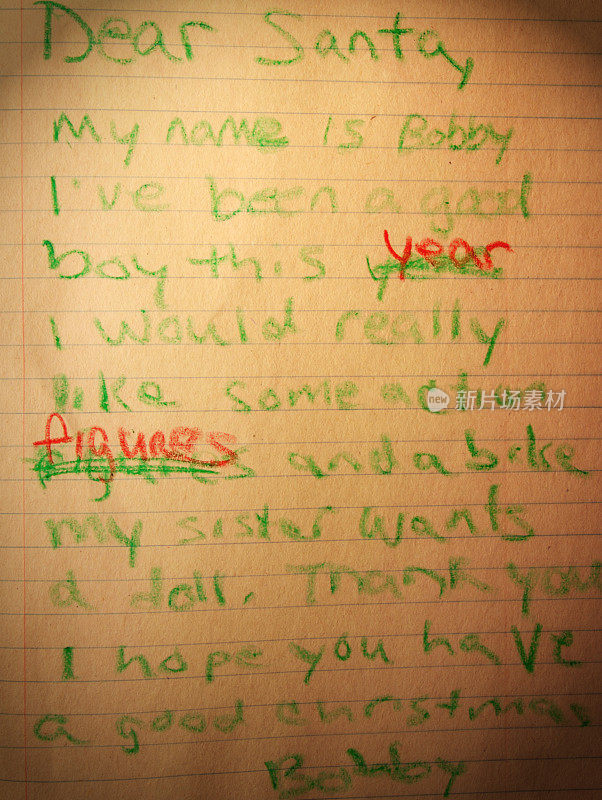 Dear Santa,
My name is Bobby
I've been a good
boy this year
I would really
like some action
figures and a bike
my sister wants
a doll. Thank you
I hope you have
a good christmas
Bobby
new 视觉中国 iStock 新锐素材